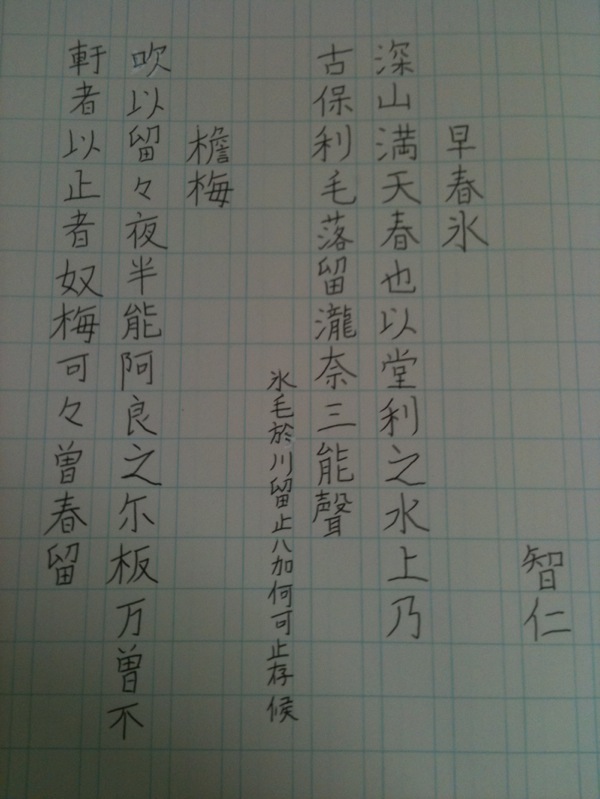 智仁
早春氷
深山満天春也以堂利之水上乃
古保利毛落留瀧奈三能聲
氷毛於川留止八加何可止存候
檐梅
吹以留々夜半能阿良之尓板万曽不
軒者以止者奴梅可々曽春留